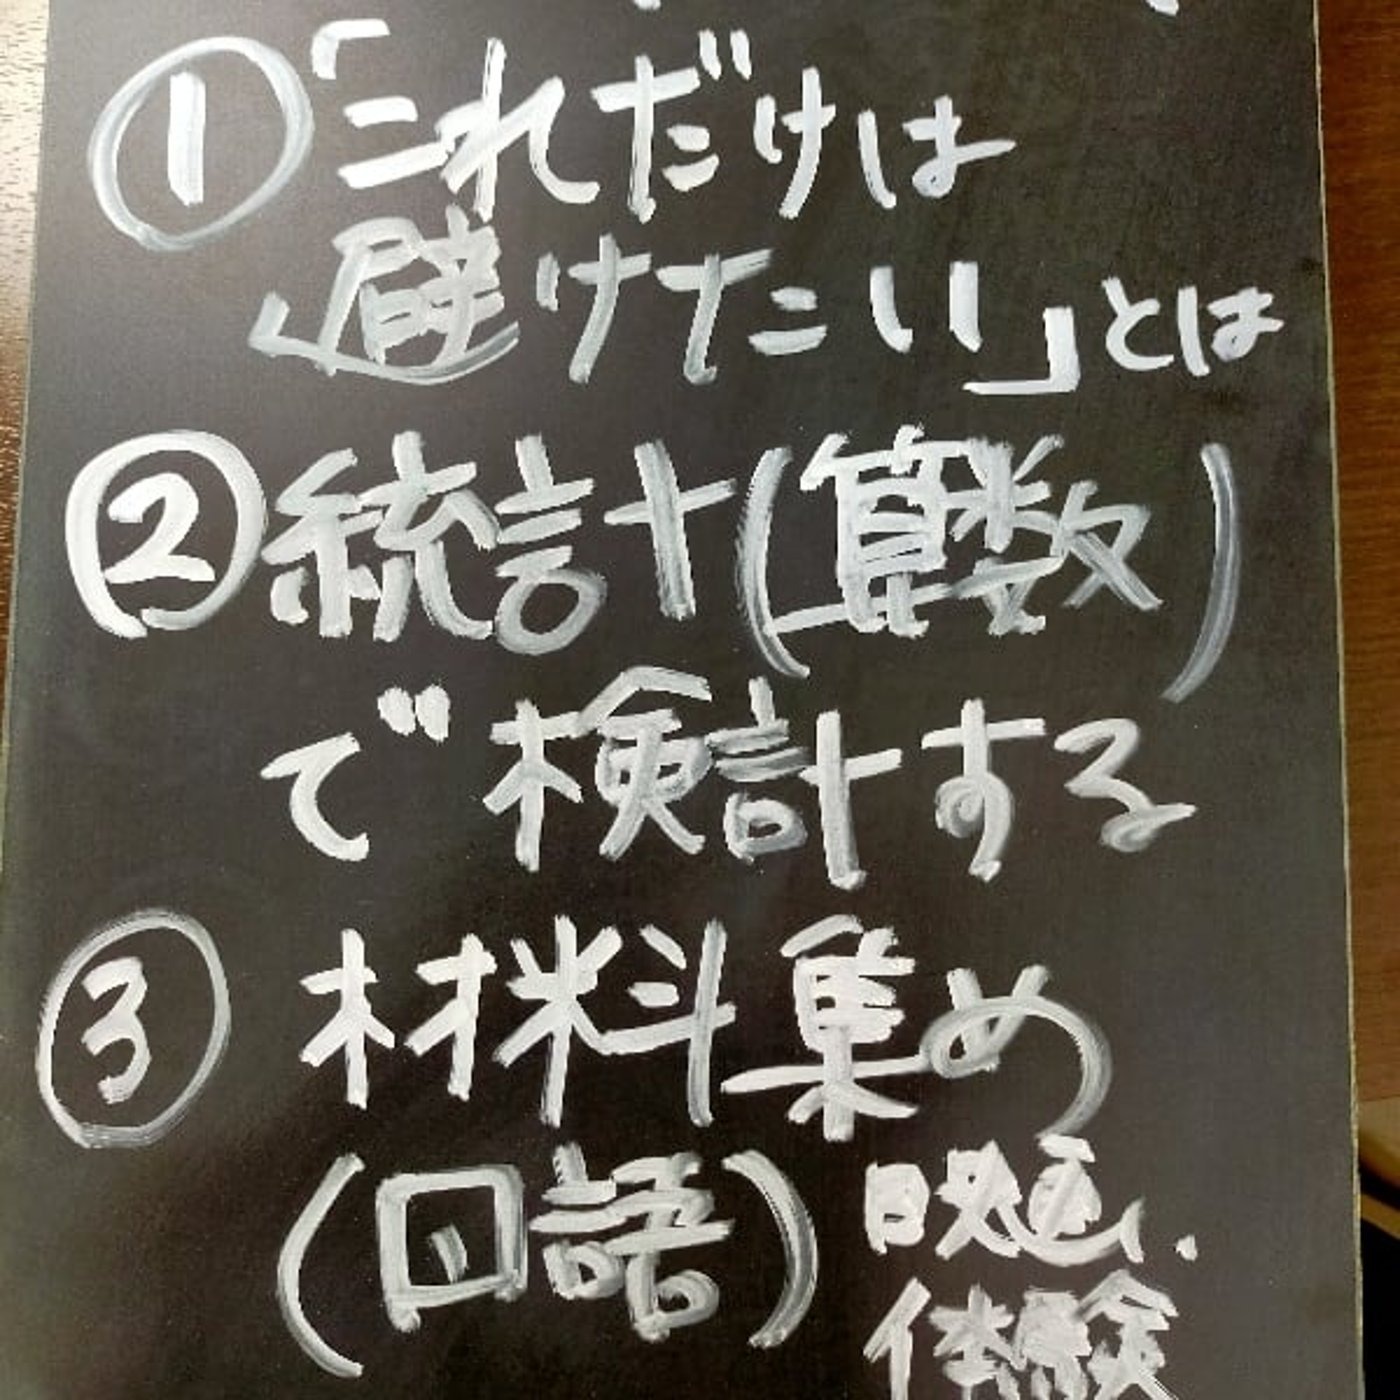 ①「これだけは
避けたい」とは
②統計(算数)
で検計する
③材料集め
(国語)
映画、
体験